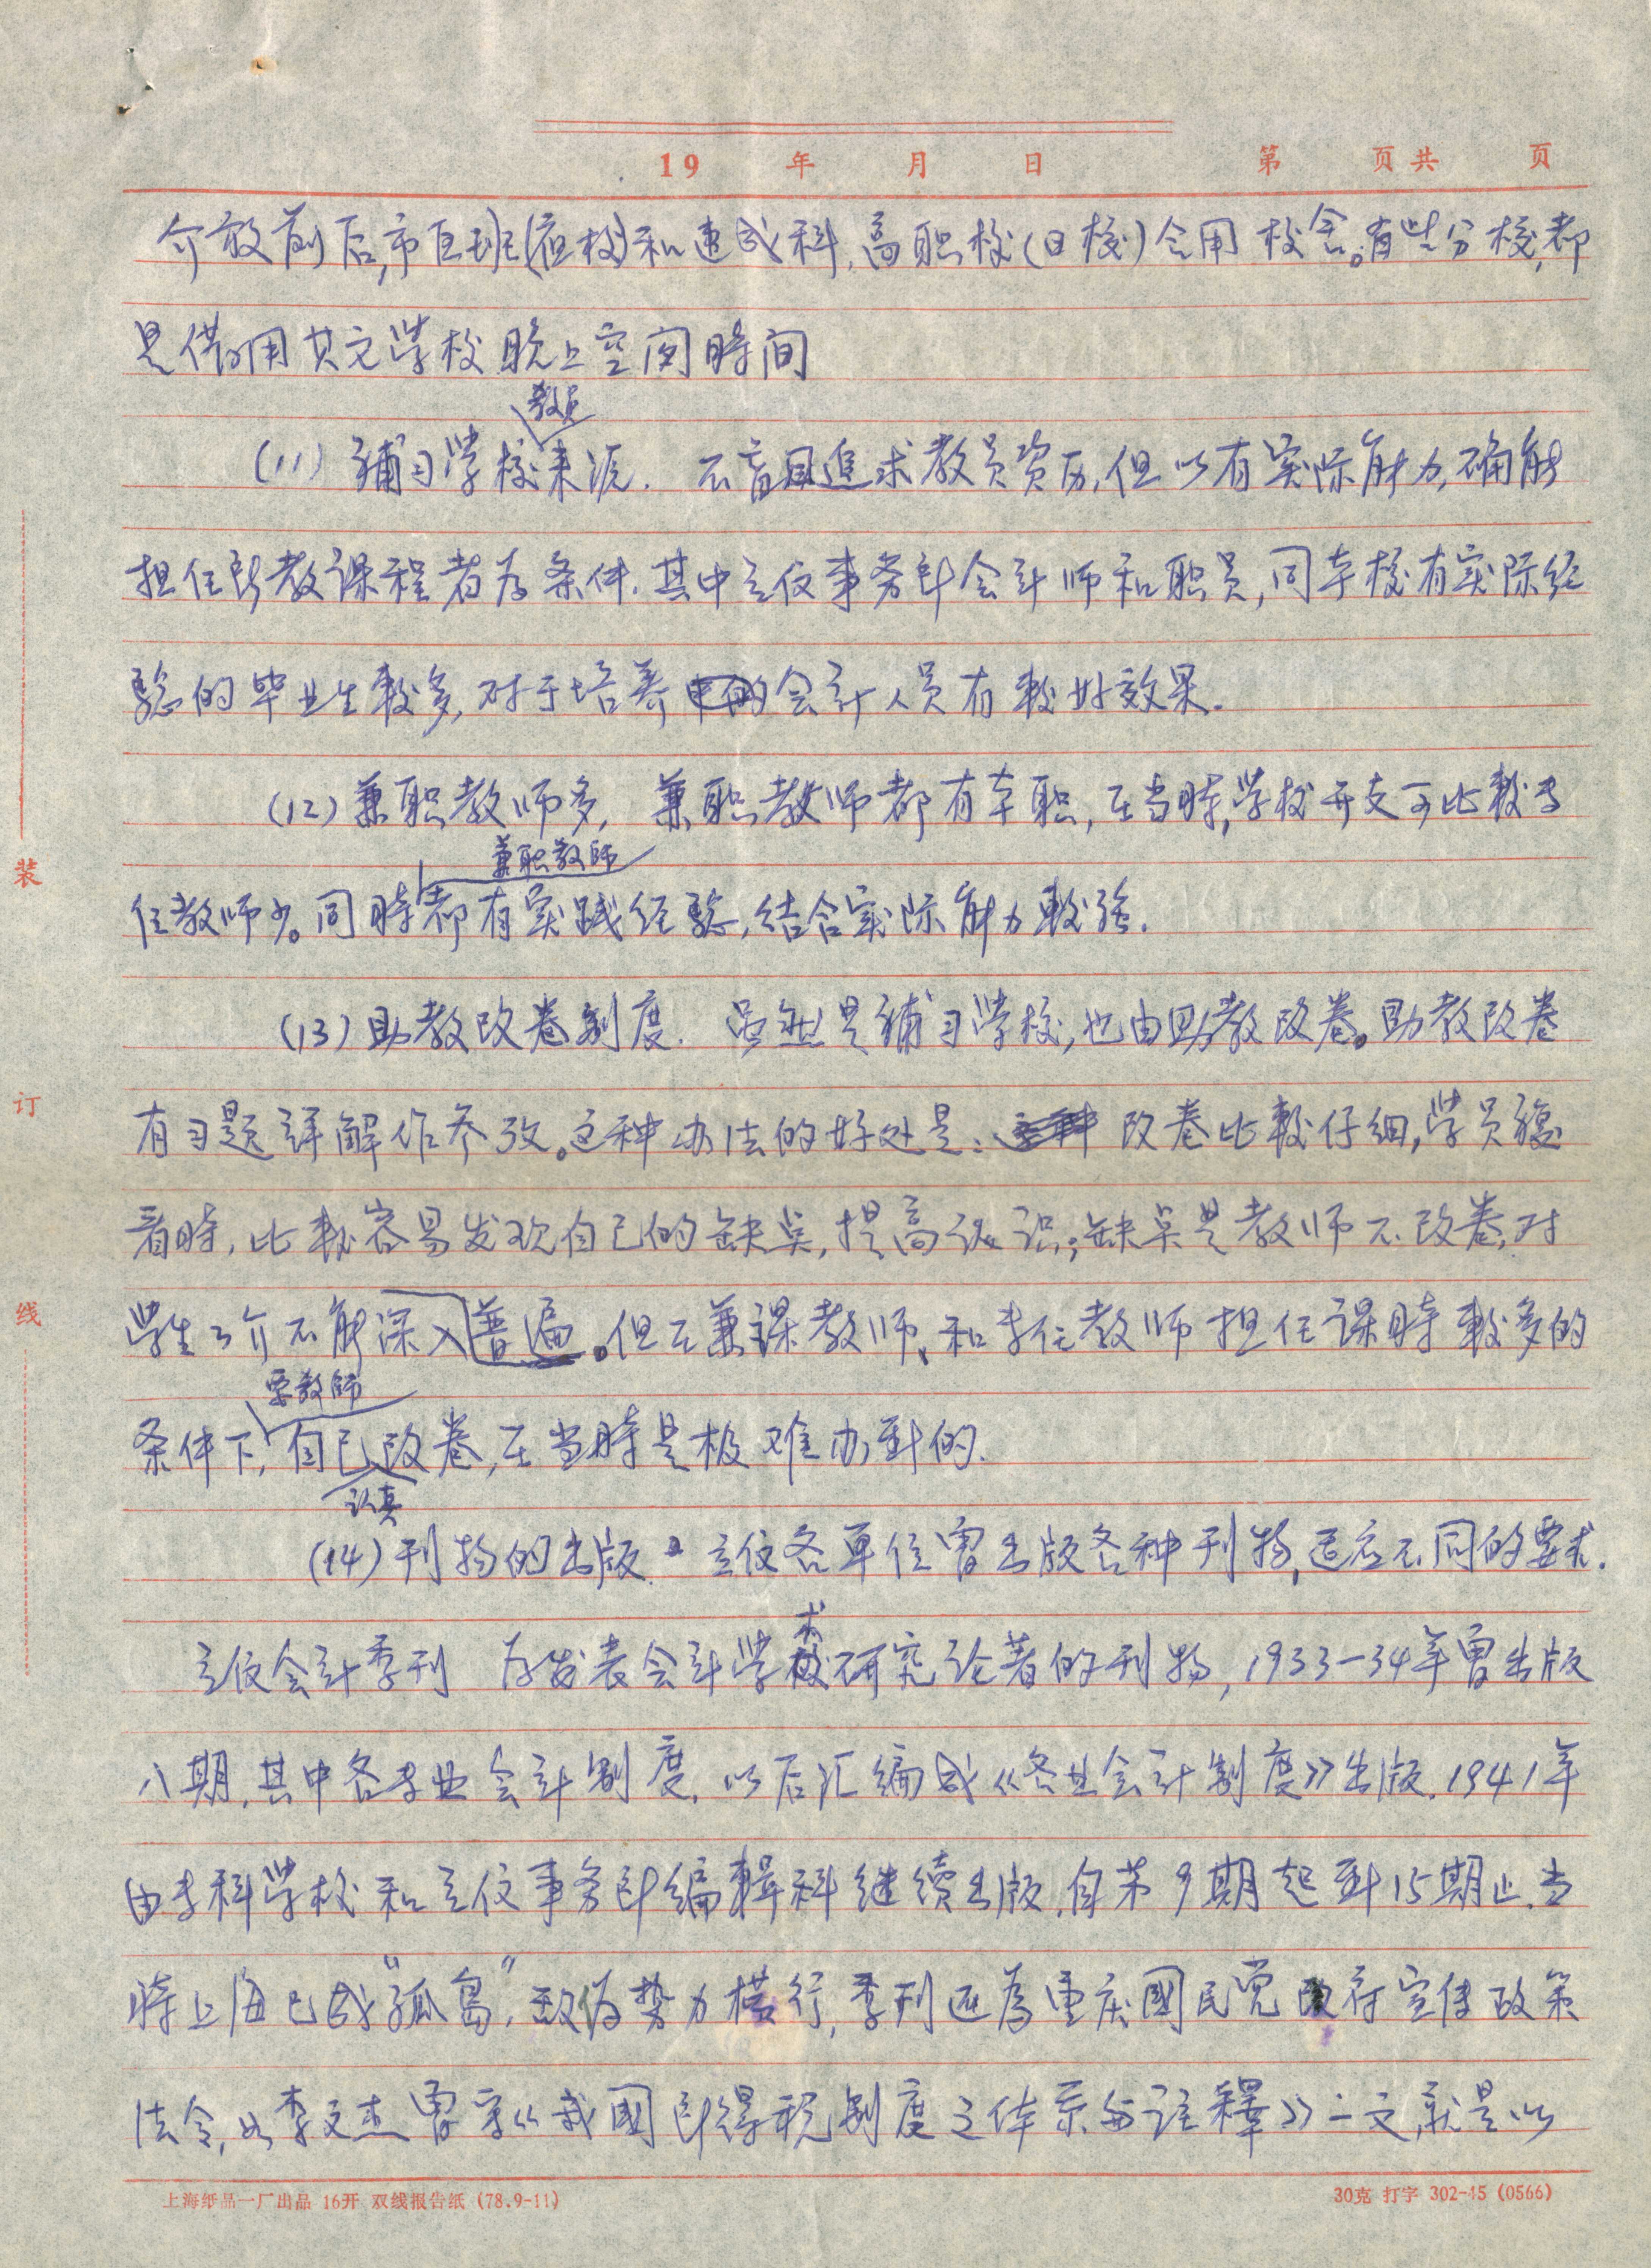 19 年 月 日 第 页共 页
介放前后,市区班(夜校)和速成科,高职校(日校)合用校舍。有些分校,都
是借用其它学校晚上空闲時间
教员
(11) 補习学校来源. 不盲目追求教员资历,但以有实际能力,确能
担任所教课程者为条件.其中立信事务所会计师和职员,同本校有实际经
驗的毕业生較多,对于培养会计人员有較好效果.
(12)兼职教师多, 兼职教师都有本职,在当時,学校开支可比較专
兼职教師
任教师少。同時都有实践经驗,结合实际能力較强.
(13)助教改卷制度. 虽然是補习学校,也由助教改卷。助教改卷
有习题详解作参攷。这种办法的好处是: 改卷比較仔细,学员複
看時,比較容易发现自己的缺点,提高认识;缺点是教师不改卷,对
学生了介不能深入普遍。但在兼課教师,和专任教师担任课時較多的
要教師
条件下,自己改卷,在当時是极难办到的.
认真
(14)刊物的出版. 立信各单位曾出版各种刊物,适应不同的要求.
术
立信会计季刊 为发表会计学研究论著的刊物,1933-34年曾出版
八期.其中各专业会计制度,以后汇编成《各业会计制度》出版.1941年
由专科学校和立信事务所编輯科继续出版,自第9期起到15期止.当
時上海已成"孤島",敌伪势力横行,季刊还為重庆國民党政府宣传政策
法令,如李文杰曾写《我國所得税制度之体系与註釋》一文,就是以
装
订
线
上海纸品一厂出品 16开 双线报告纸 (78.9-11) 30克 打字 302-45 (0566)